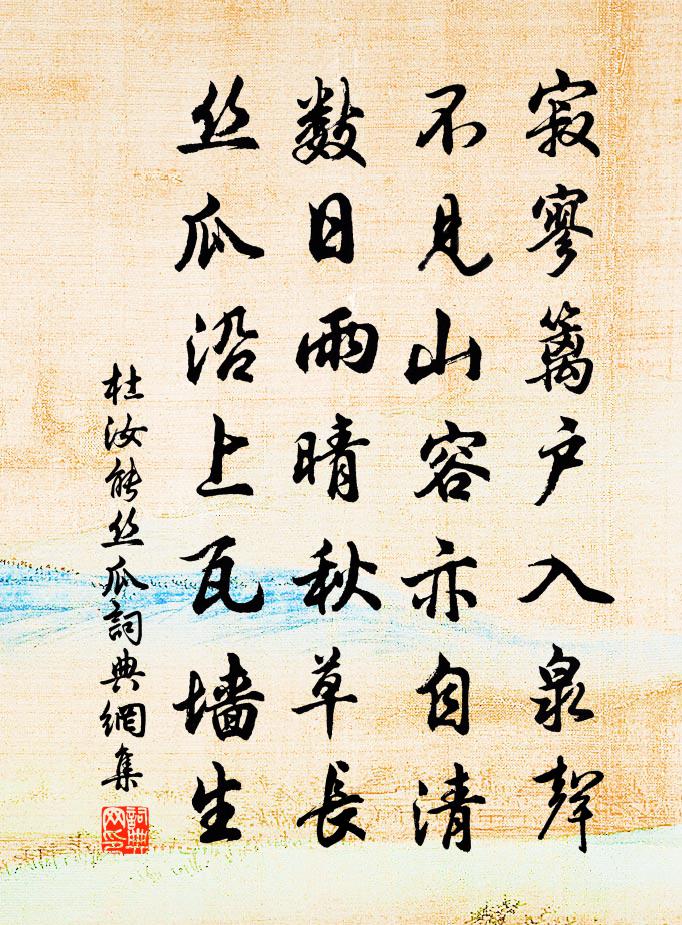 寂寥篱户入泉聲
不見山容亦自清
数日雨晴秋草長
丝瓜沿上瓦墙生
杜汝能丝瓜詞典網集
詞典
网印